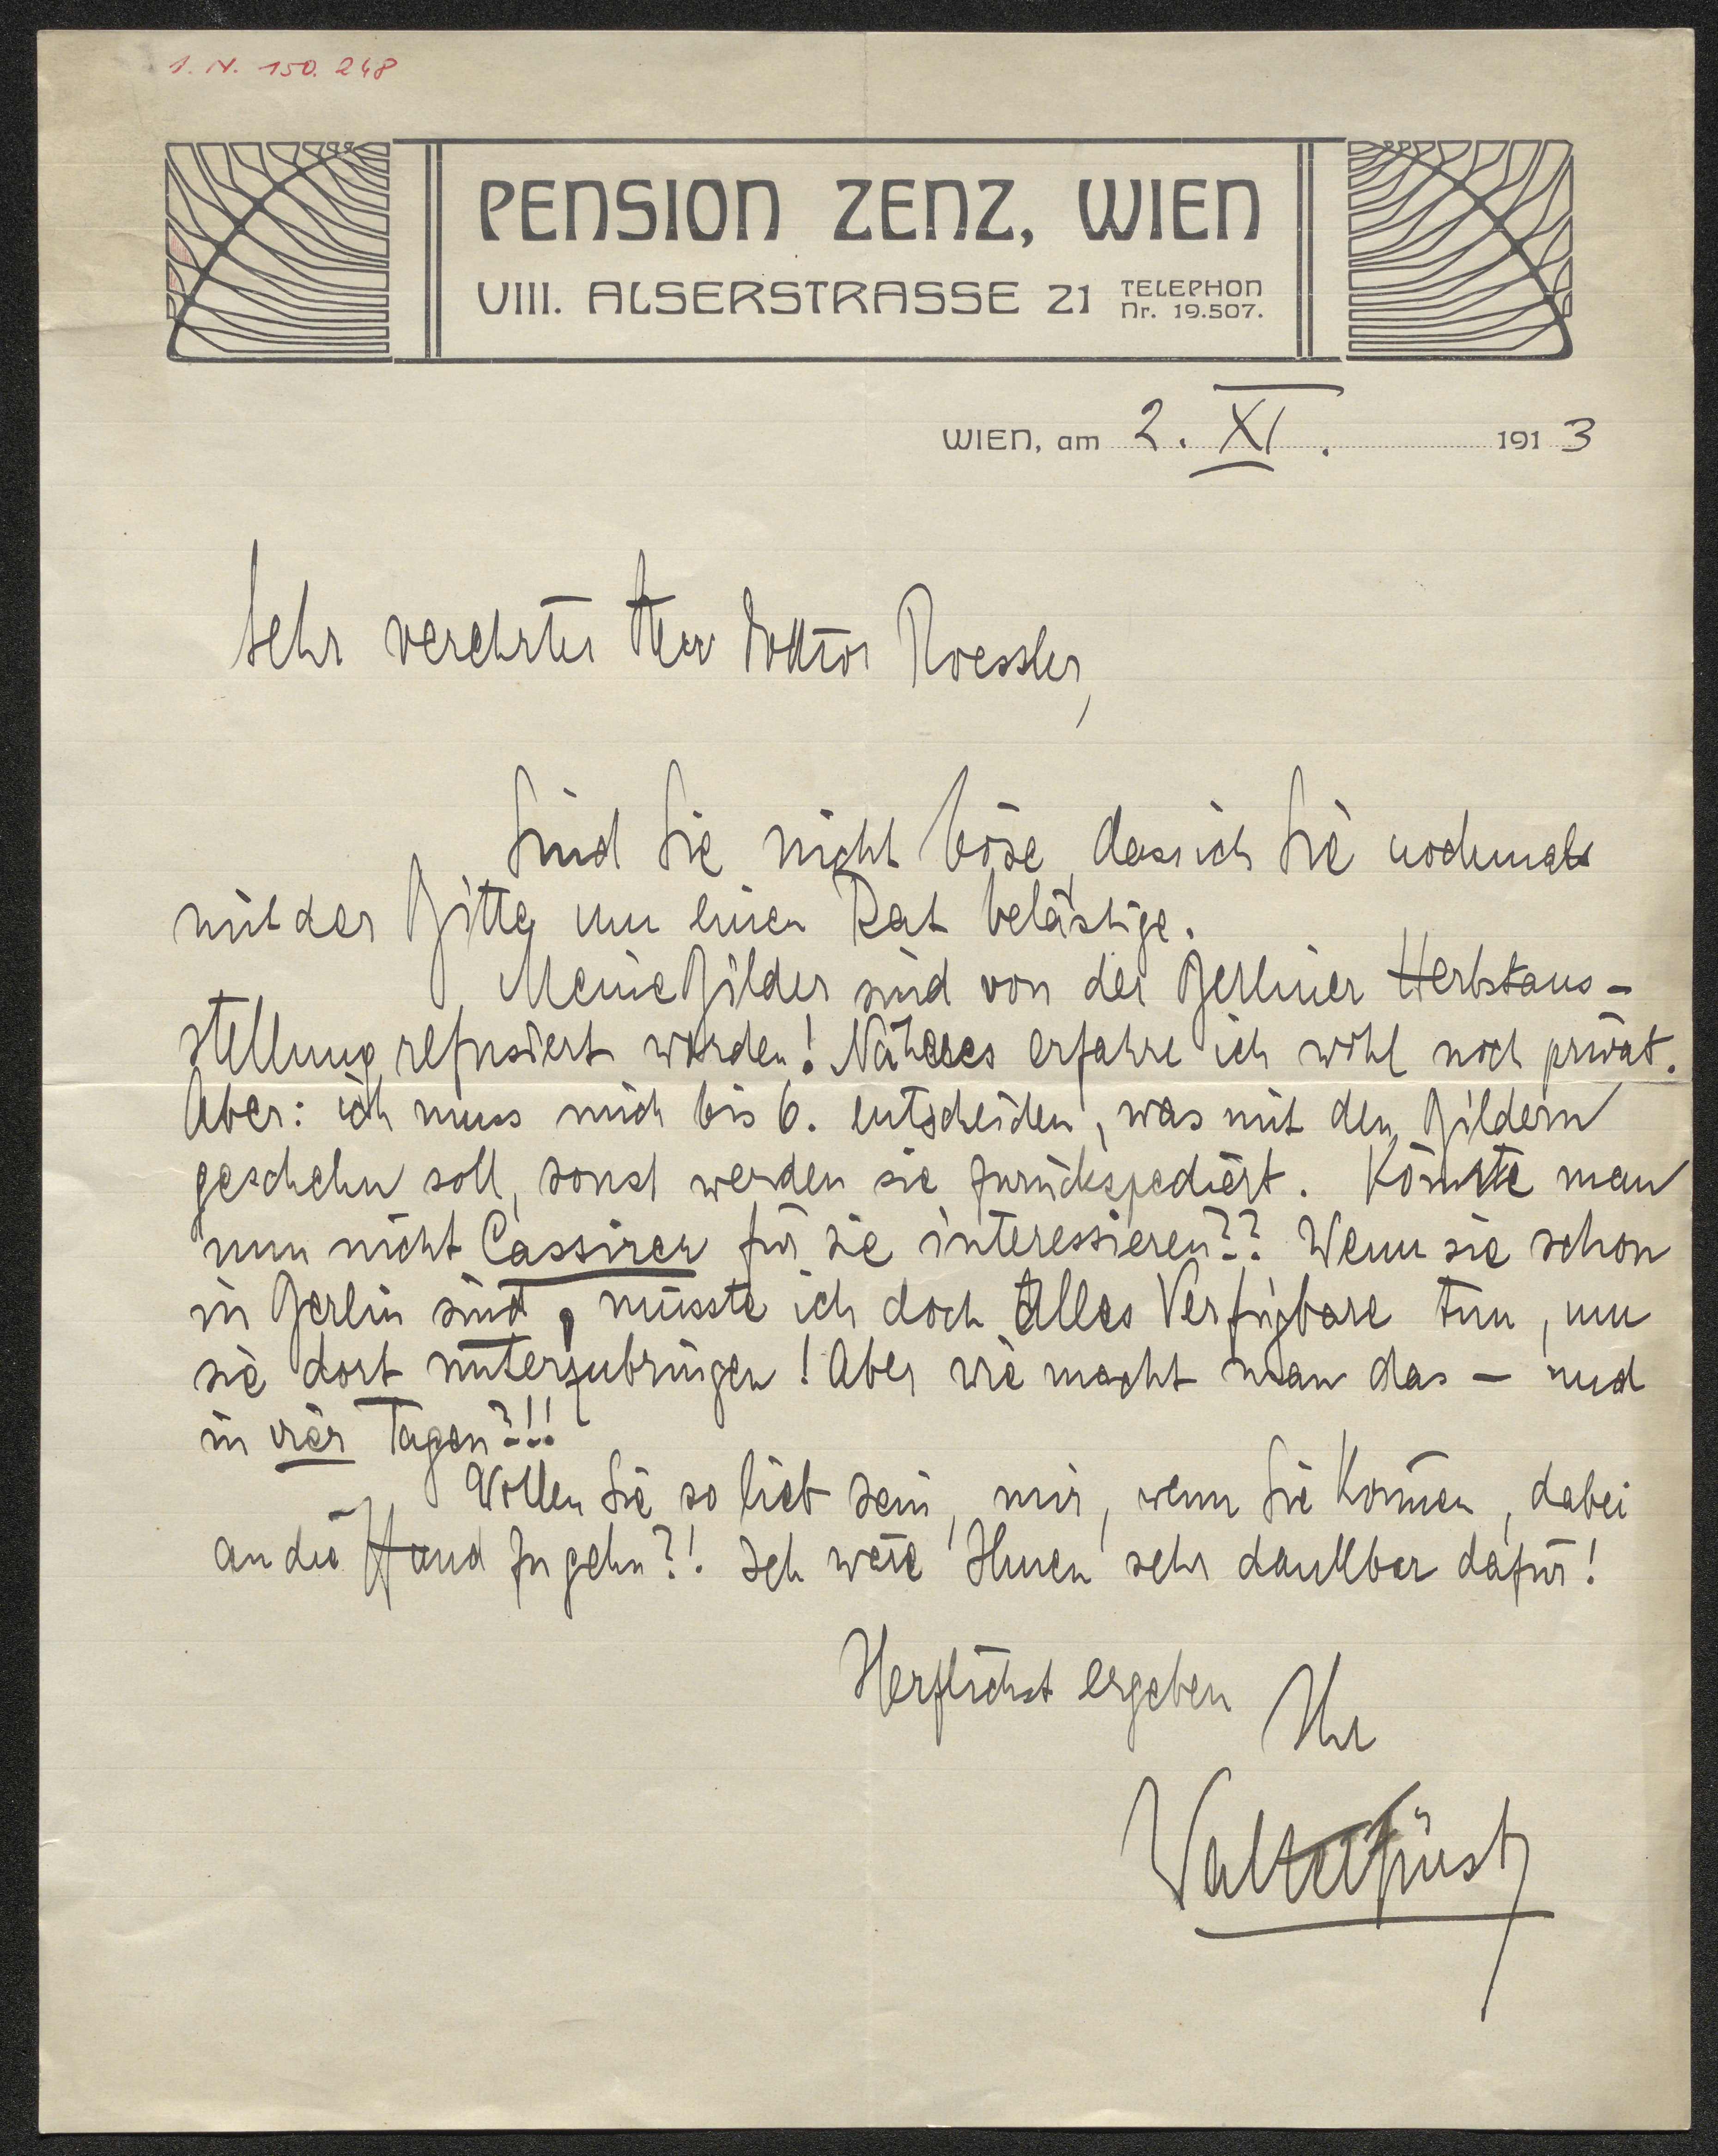 I. N. 150.248
PENSION ZENZ, WIEN
VIII. ALSERSTRASSE 21 TELEPHON
Nr. 19.507.
WIEN, am 2. XI. 1913
Sehr verehrter Herr Doktor Roessler,
Sind Sie nicht böse, dass ich Sie nochmals
mit der Bitte um einen Rat belästige.
Meine Bilder sind von der Berliner Herbstaus-
stellung refusiert worden! Näheres erfahre ich wohl noch privat.
Aber: ich muss mich bis 6. entscheiden, was mit den Bildern
geschehn soll, sonst werden sie zurückspediert. Könnte man
nun nicht Cassirer für sie interessieren?? Wenn sie schon
in Berlin sind, müsste ich doch alles Verfügbare tun, um
sie dort unterzubringen! Aber wie macht man das – und
in vier Tagen?!!
Wollen Sie so lieb sein, mir, wenn Sie können, dabei
an die Hand zu gehn?! Ich wäre Ihnen sehr dankbar dafür!
Herzlichst ergeben Ihr